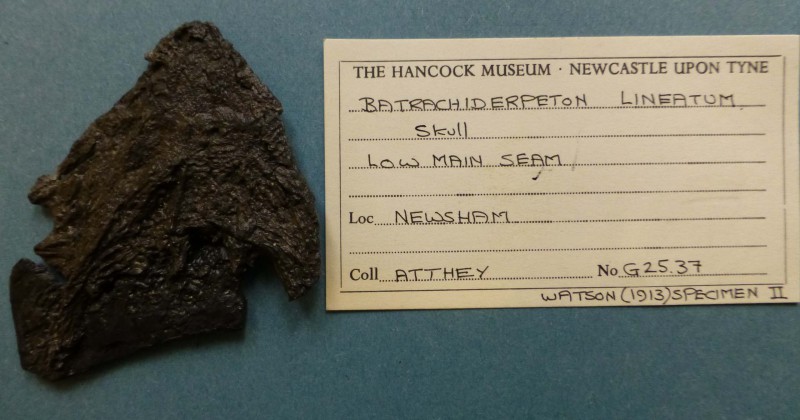 THE HANCOCK MUSEUM · NEWCASTLE UPON TYNE
BATRACHIDERPETON LINEATUM
Skull
LOW MAIN SEAM
Loc NEWSHAM
Coll ATTHEY No G25.37
WATSON (1913) SPECIMEN II